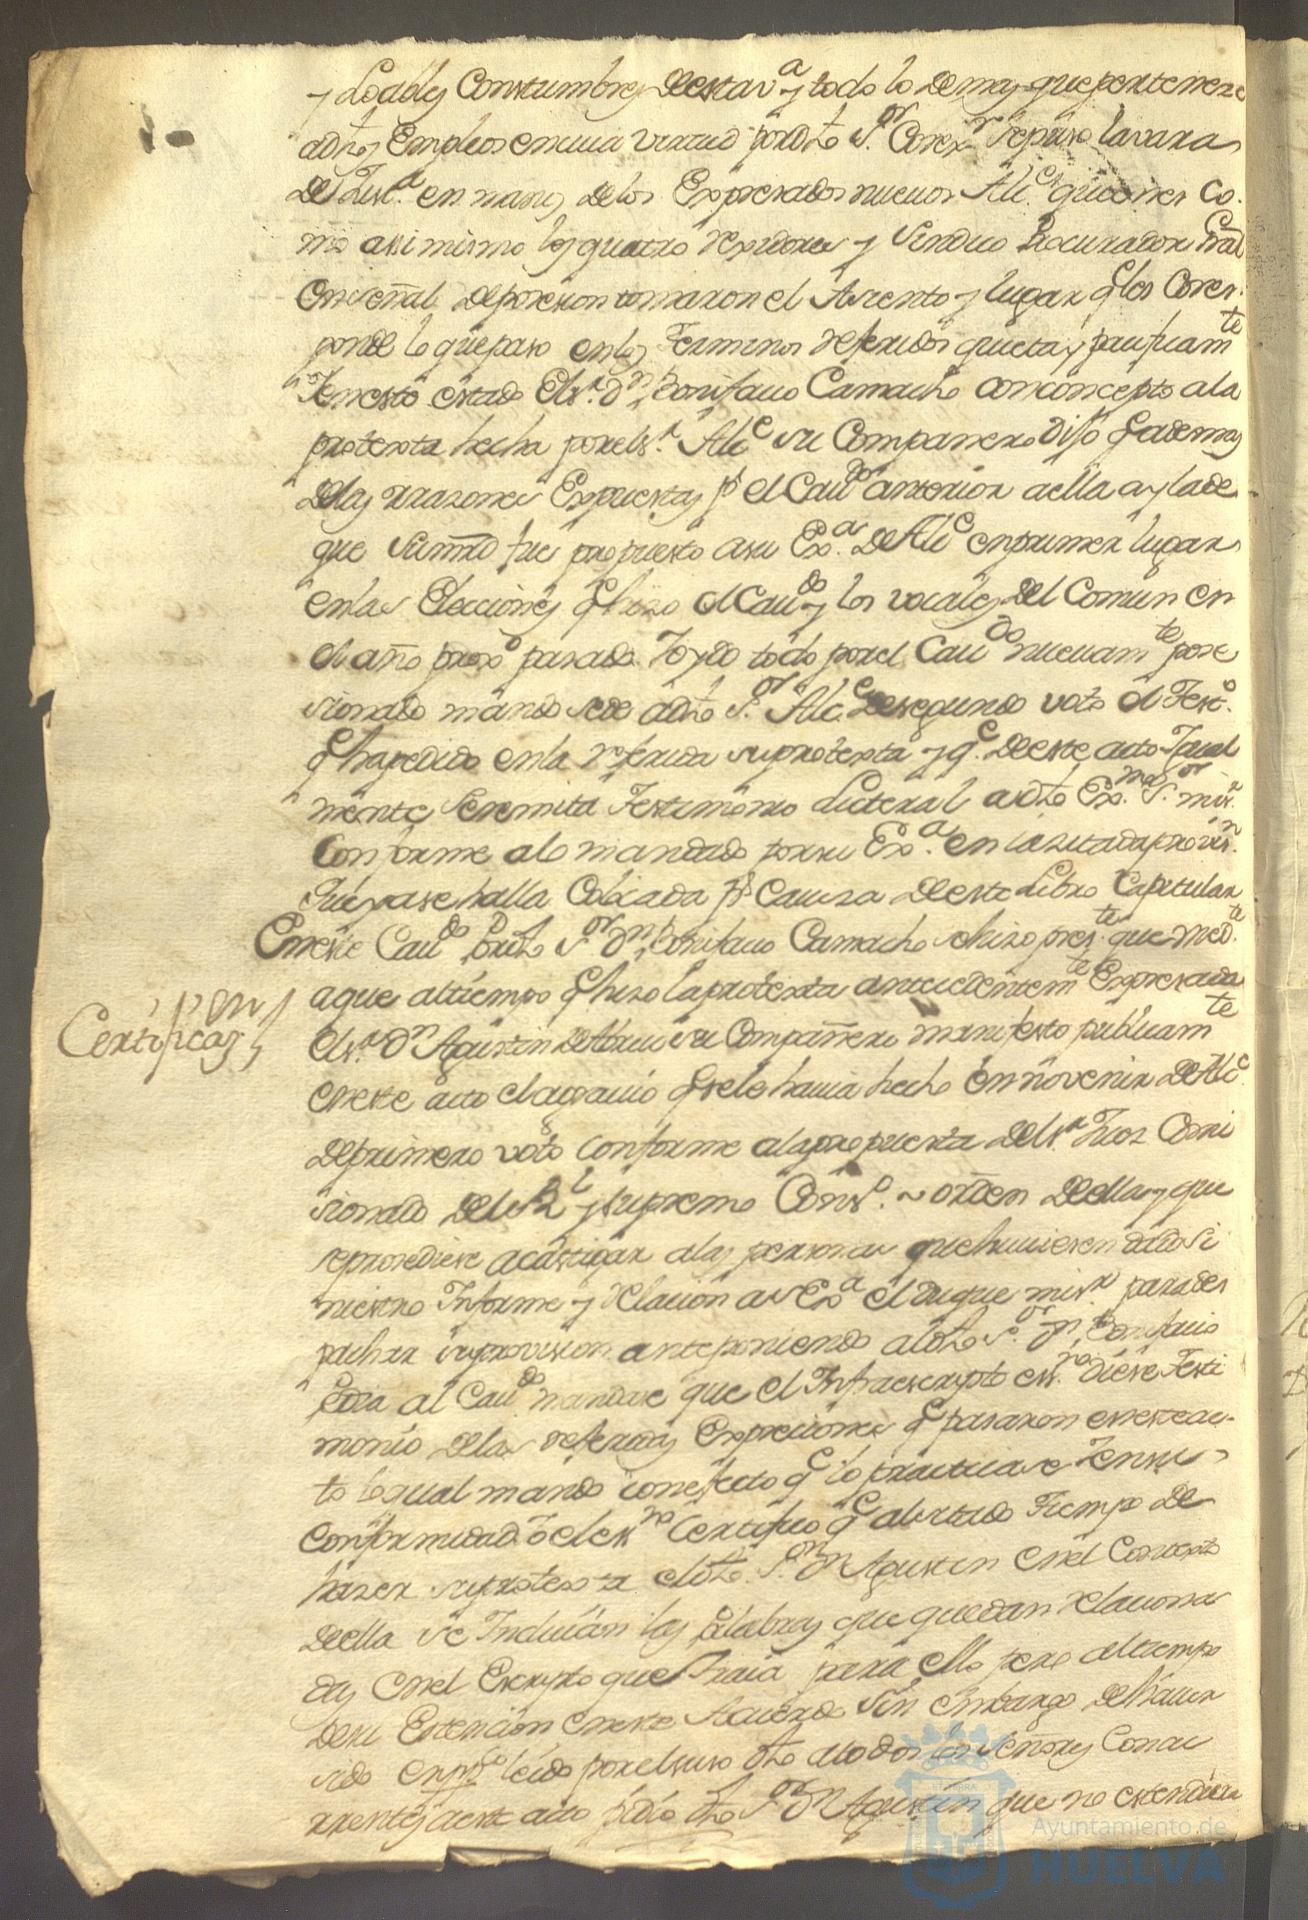 y Loables Constumbres de esta v.ª y todo lo demas que pertenece
a dhos Empleos en cuia virtud por dho S.or Correx.r se puso la vara
de Just.ª en manos de los Expresados nuevos Alc.es quienes co-
mo asi mismo los quatro rexidores y Sindico Procurador Gral
en señal de posesion tomaron el Asiento y lugar q.e les Corres-
ponde lo que paso en los Terminos referidos quieta y pacificam.te
Y en este estado el s.r d.n Bonifacio Camacho con concepto a la
protexta hecha por el s.r Alc.e su Compañero Dijo q.e ademas
de las rrazones Expuestas p.r el Cau.do anterior a ella ay la de
que su mrd fue propuesto a su Ex.ª de Alc.e en primer lugar
en las Elecciones q.e hizo el Cau.do y los vocales del Comun en
el año prox.o pasado. Y oydo todo por el Cau.do nuevam.te pose
sionado mando se de a dho S.or Alc.e de segundo voto el Test.o
q.e ha pedido en la referida su protexta y q.e de este auto Igual
mente se remita Testimonio Literal a dho Ex.mo S.or mi s.r
Conforme a lo mandado por su Ex.ª en la zitada provis.n
que ya se halla Colocada p.r Caveza de este Libro Capitular
En este Cau.do por dho S.or d.n Bonifacio Camacho se hizo pres.te que med.te
a que al tiempo q.e hizo la protexta antecedentem.te Expresada
el s.r d.n Agustin de Abreu su Compañero manifesto publicam.te
Certificaz.on
en este auto el agravio q.e se le havia hecho en no venir de Alc.e
de primero voto conforme a la propuesta del s.r Juez Comi
sionado del R.l y Supremo Cons.o ~ orden de ella y que
se prosediese a castigar a las personas que huviesen dado si
niestro Informe y relacion a s Ex.ª el Duque mi s.r para des
pachar su provision anteponiendo a dho S.or d.n Bonifacio
Pedia al Cau.do mandase que el Infraescripto ess.no diese Testi
monio de las referidas Expreciones q.e pasaron en este ac-
to lo qual mando con efecto q.e lo practicase Y en su
Conformidad Yo el ess.no Certifico q.e al zitado Tiempo de
hazer su protexta el dho S.or d.n Agustin en el Contexto
de ella se Incluian las palabras que quedan relaciona
das en el Escripto que traia para ello pero al tiempo
de su Estencion en este Acuerdo sin embargo de haver
sido leido por el suso dho a todos los señores Concu
rrentes a este auto pidio dho S.or d.n Agustin que no estendiera
Ayuntamiento de
HUELVA